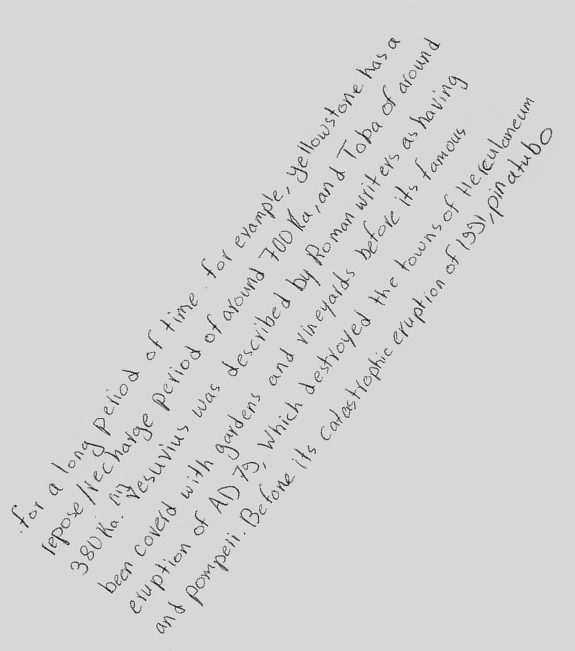 .for a long period of time. for example, yellowstone has a
repose/recharge period of around 700 Ka, and Toba of around
380 Ka. [11] Vesuvius was described by Roman writers as having
been coverd with gardens and vineyards before its famous
eruption of AD 79, which destroyed the towns of Herculaneum
and pompeii. Before its catastrophic eruption of 1991, pinatubo